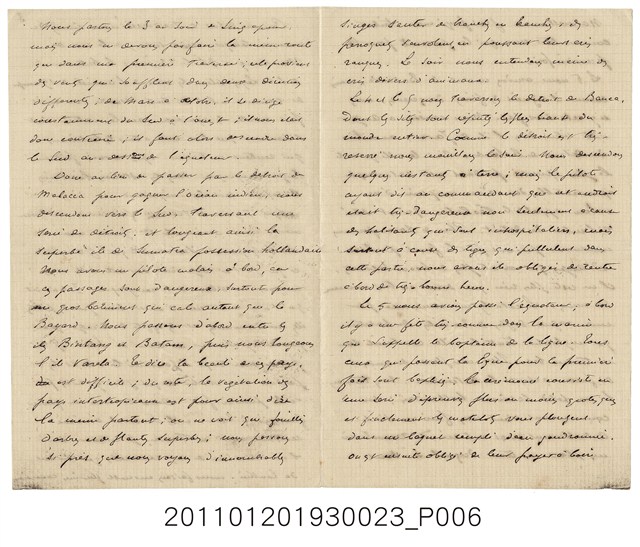 Nous partons le 3 au soir de Singapour
mais nous ne devons pas faire la même route
que dans ma première traversée; elle provient
des vents qui soufflent dans deux directions
différentes; de Mars à Octobre, il se dirige
constamment du Sud à l'ouest; il nous est
donc contraire; il faut alors descendre dans
le Sud au dessous de l'équateur.
Donc au lieu de passer par le détroit de
Malacca pour gagner l'océan indien, nous
descendons vers le Sud, traversant une
série de détroits et longeant ainsi la
superbe île de Sumatra possession hollandaise
Nous avons un pilote malais à bord, car
ces passages sont dangereux, surtout pour
un gros bâtiment qui cale autant que le
Bayard. Nous passons d'abord entre les
îles Bintang et Batam, puis nous longeons
l'île Varela. Te dire la beauté de ces pays
est difficile; du reste, la végétation des
pays intertropicaux est pour ainsi dire
la même partout; on ne voit que feuilles
d'arbres et de plantes superbes; nous passons
si près que nous voyons d'innombrables
singes sauter de branche en branche, des
perroquets s'envolent en poussant leurs cris
rauques. Le soir nous entendons même des
cris divers d'animaux.
Le 4 et le 5 nous traversons le détroit de Banca,
dont les îles sont réputées les plus belles du
monde entier. Comme le détroit est très
resserré nous mouillons le soir. Nous descendons
quelques instants à terre; mais le pilote
ayant dit au commandant que cet endroit
était très dangereux non seulement à cause
des habitants qui sont inhospitaliers, mais
surtout à cause des tigres qui pullulent dans
cette partie, nous avons été obligés de rentrer
à bord de très bonne heure.
Le 5 nous avions passé l'équateur; à bord
il y a une fête très connue dans la marine
que l'on appelle le baptême de la ligne. Tous
ceux qui passent la ligne pour la première
fois sont baptisés. La cérémonie consiste en
une série d'épreuves plus ou moins grotesques
et finalement les matelots vous plongent
dans un baquet rempli d'eau goudronnée.
On est ensuite obligé de leur payer à boire,
201101201930023_P006